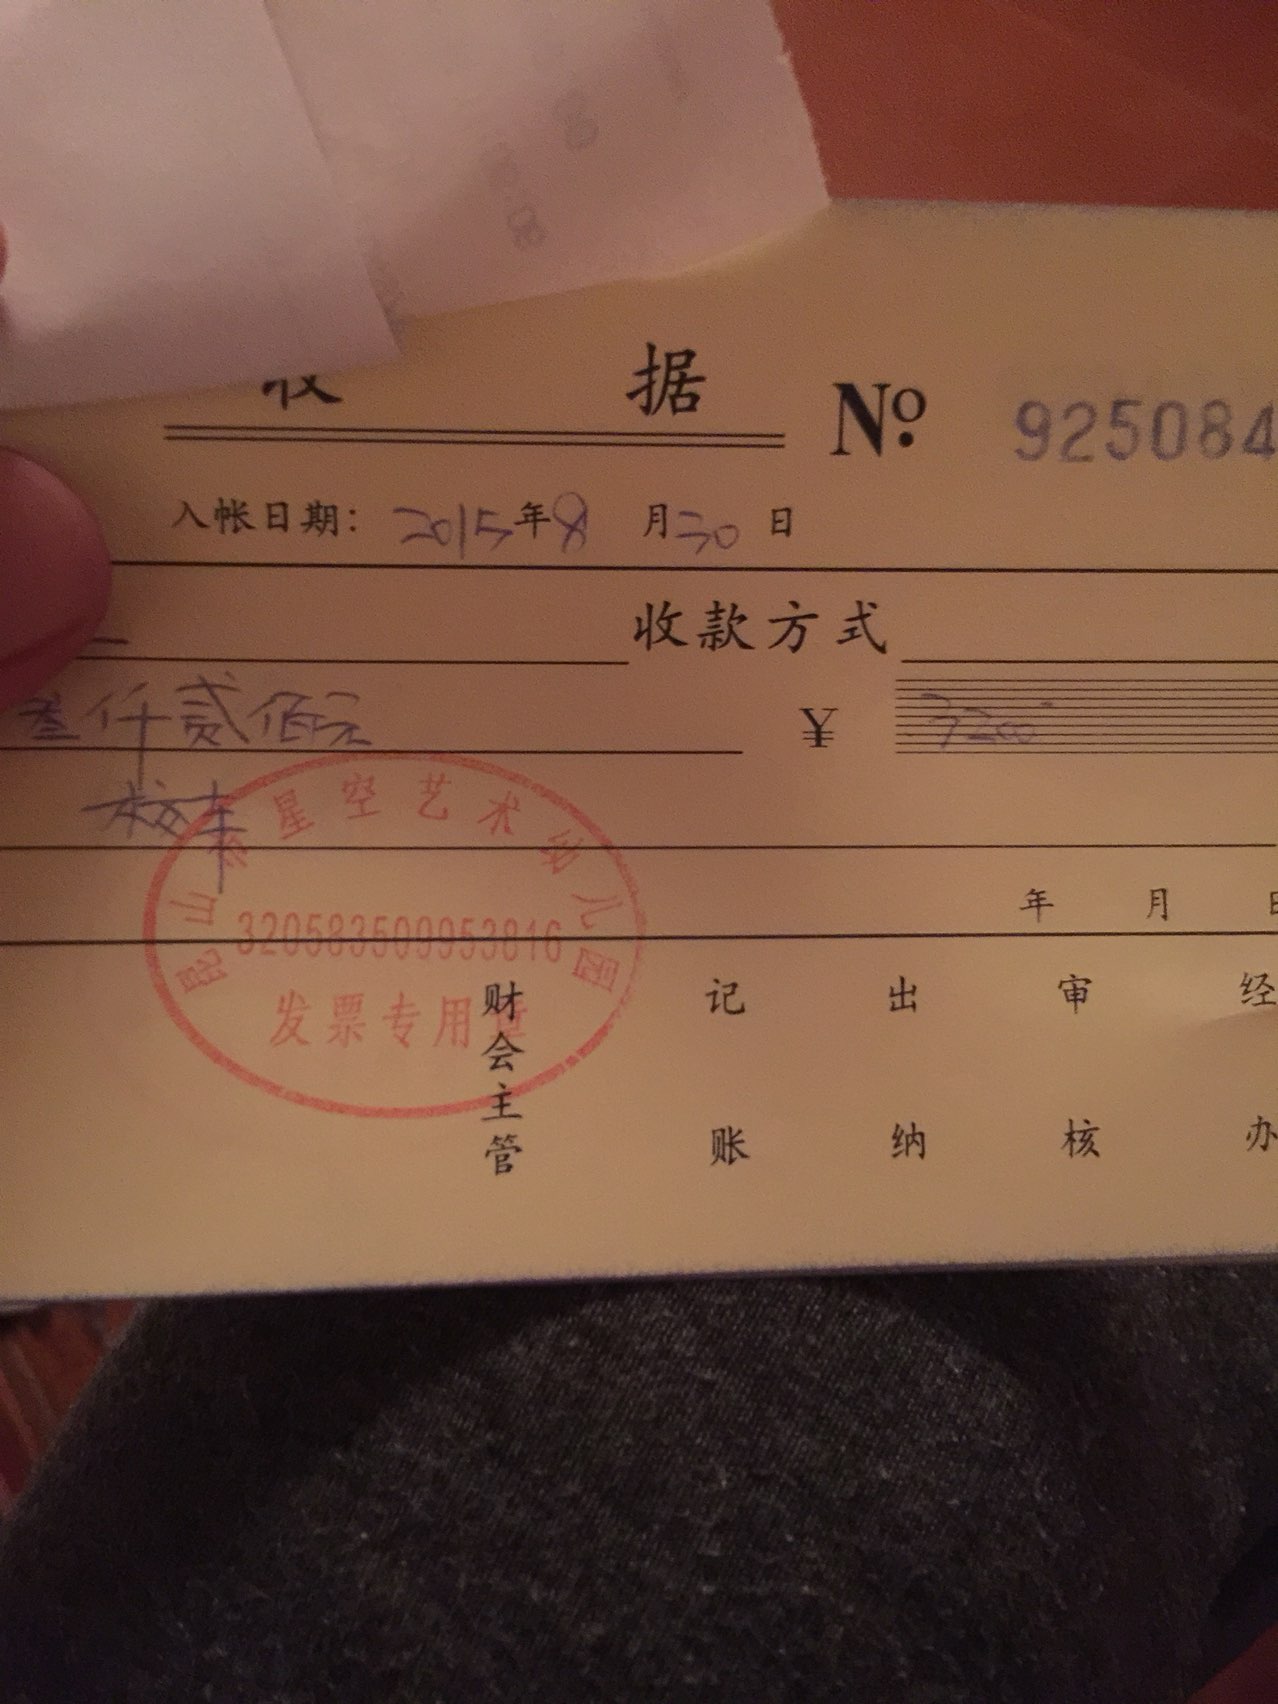 收 据 № 925084
入帐日期: 2015年8月30日
收款方式
叁仟贰佰元 ¥ 3200
校车
昆山 星空艺术幼儿园
320583509953816
发票专用章
年 月 日
财会主管 记账 出纳 审核 经办